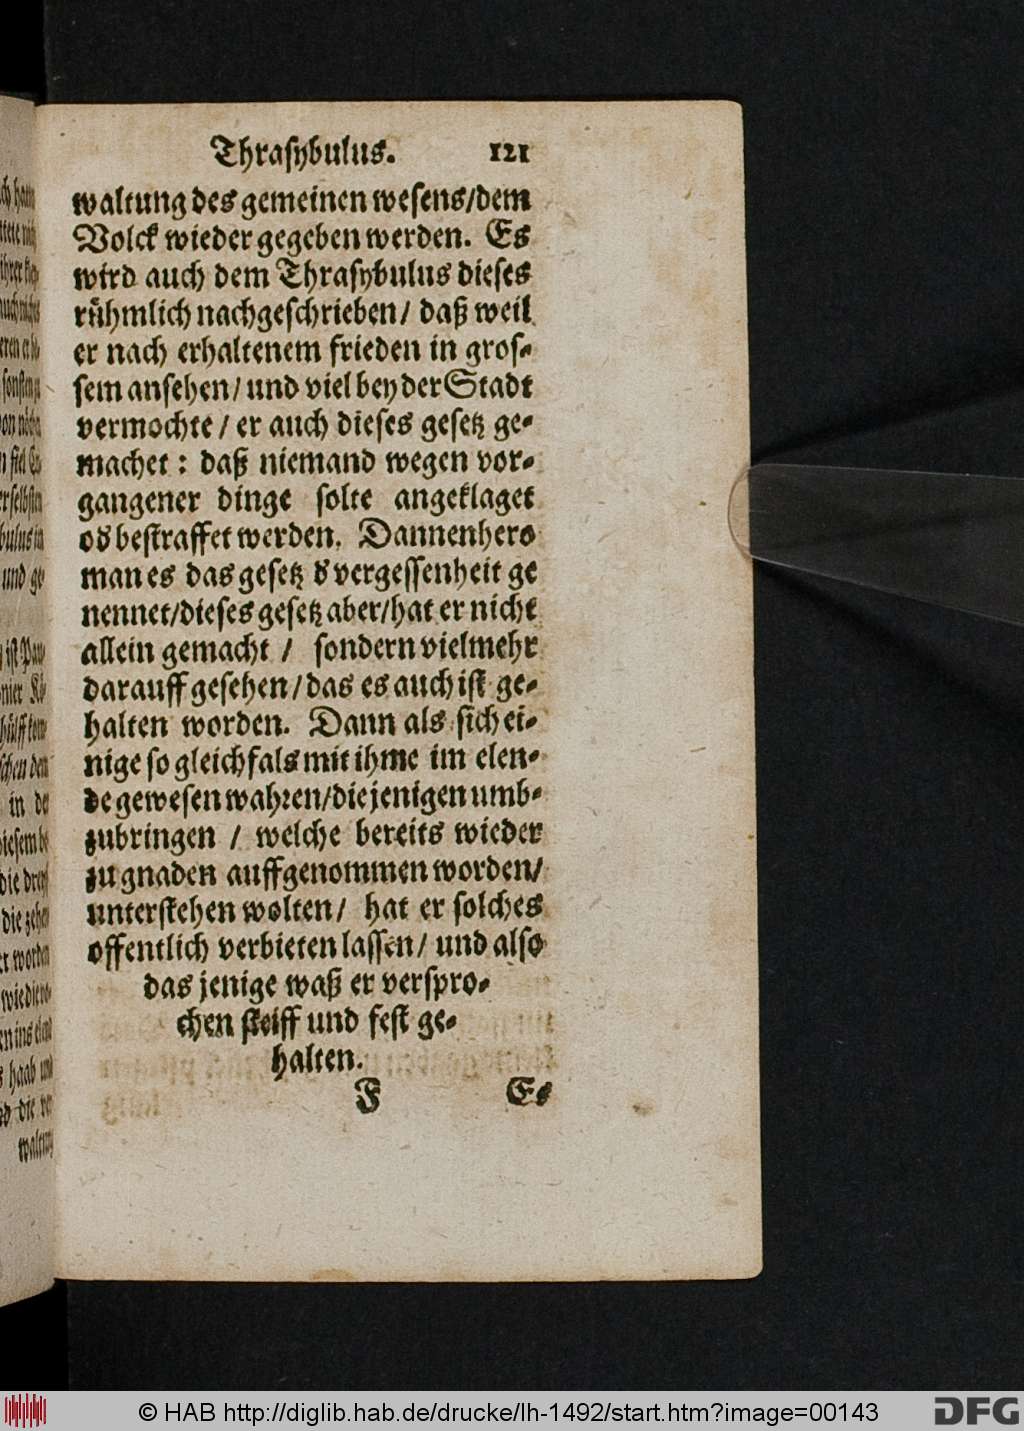 Thrasybulus. 121
waltung des gemeinen wesens/dem
Volck wieder gegeben werden. Es
wird auch dem Thrasybulus dieses
rühmlich nachgeschrieben/ daß weil
er nach erhaltenem frieden in gros-
sem ansehen/ und viel bey der Stadt
vermochte / er auch dieses gesetz ge-
machet : daß niemand wegen vor-
gangener dinge solte angeklaget
od bestraffet werden. Dannenhero
man es das gesetz d vergessenheit ge
nennet/dieses gesetz aber/hat er nicht
allein gemacht / sondern vielmehr
darauff gesehen/das es auch ist ge-
halten worden. Dann als sich ei-
nige so gleichfals mit ihme im elen-
de gewesen wahren/diejenigen umb-
zubringen / welche bereits wieder
zu gnaden auffgenommen worden/
unterstehen wolten/ hat er solches
offentlich verbieten lassen/ und also
das jenige waß er verspro-
chen steiff und fest ge-
halten.
F Es
© HAB http://diglib.hab.de/drucke/lh-1492/start.htm?image=00143
DFG